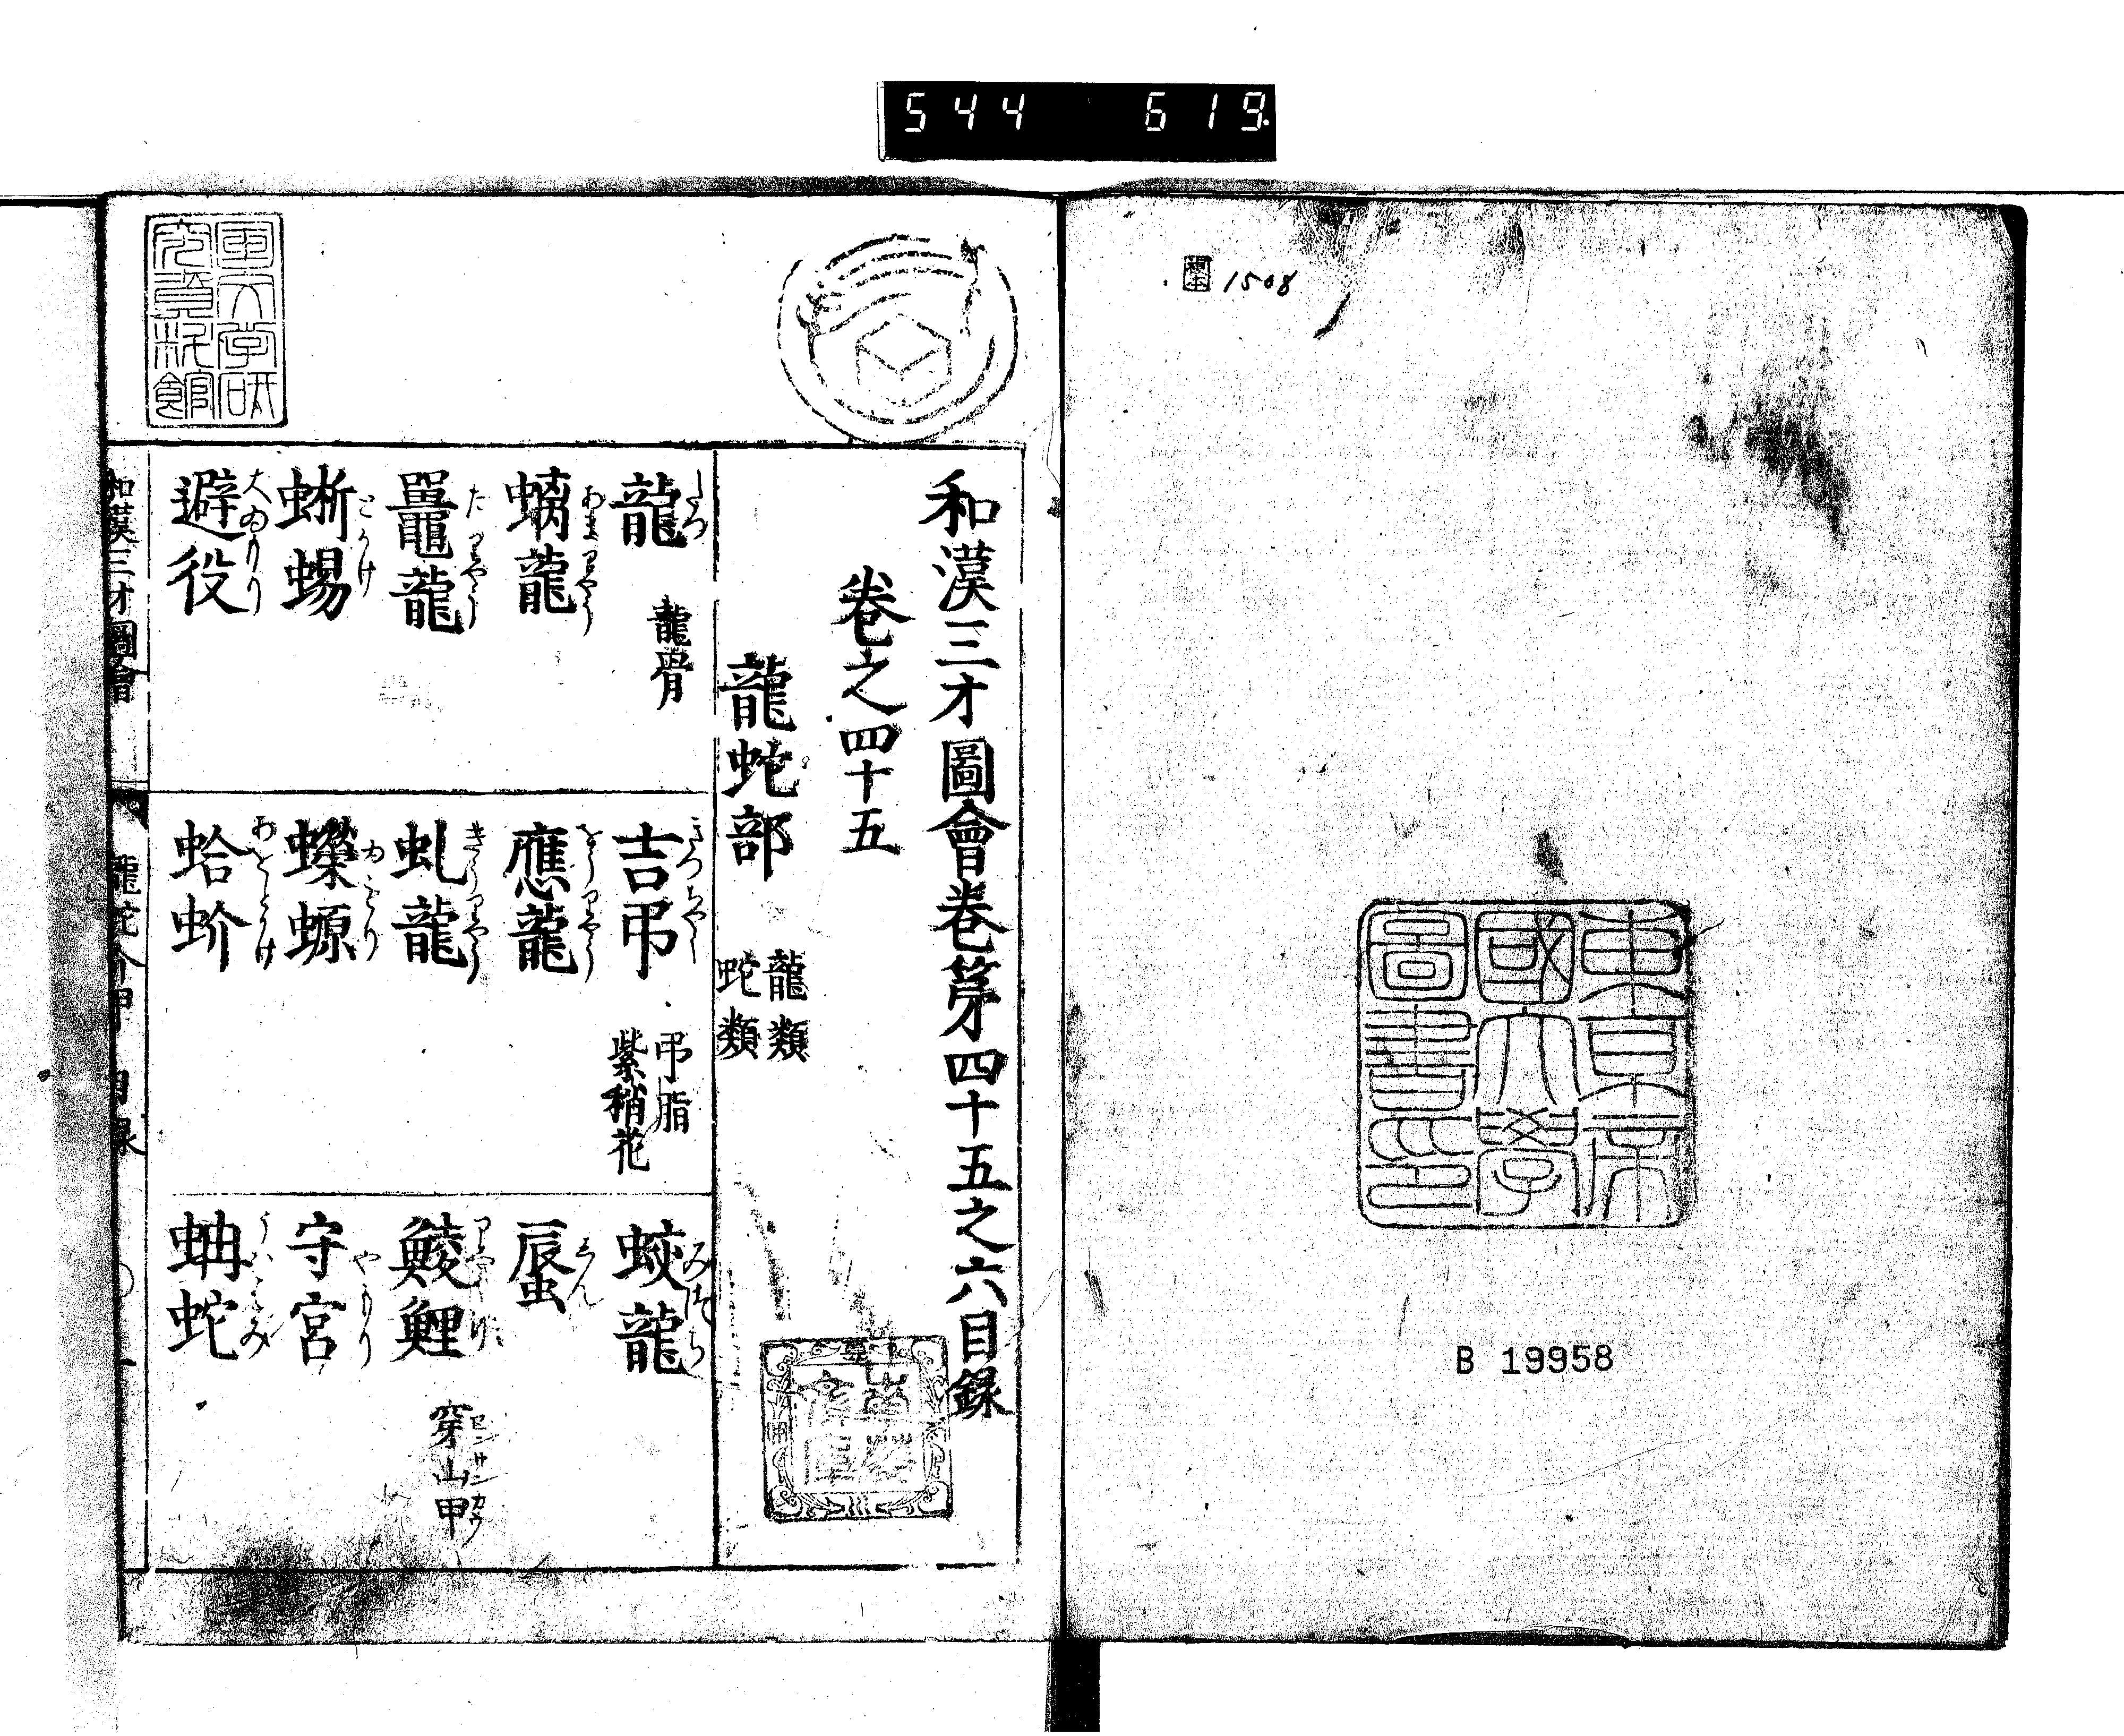 544 619
1508
東京帝
國大學
圖書印
B 19958
和漢三才圖會卷第四十五之六目錄
卷之四十五
龍蛇部 龍類 蛇類
龍 たつ 龍骨
吉弔 きつちやう 弔脂 紫稍花
蛟龍 みつち
螭龍 あまりやう
應龍 をうりやう
蜃 しん
鼉龍 たりやう
虬龍 きうりやう
鯪鯉 穿山甲 センサンカウ
蜥蜴 とかけ
蠑螈 ゐもり
守宮 やもり
避役 大ゐもり
蛤蚧 あをとかけ
蚺蛇 うはばみ
和漢三才圖會 龍蛇介甲 目录 一
史文学研
究資料館